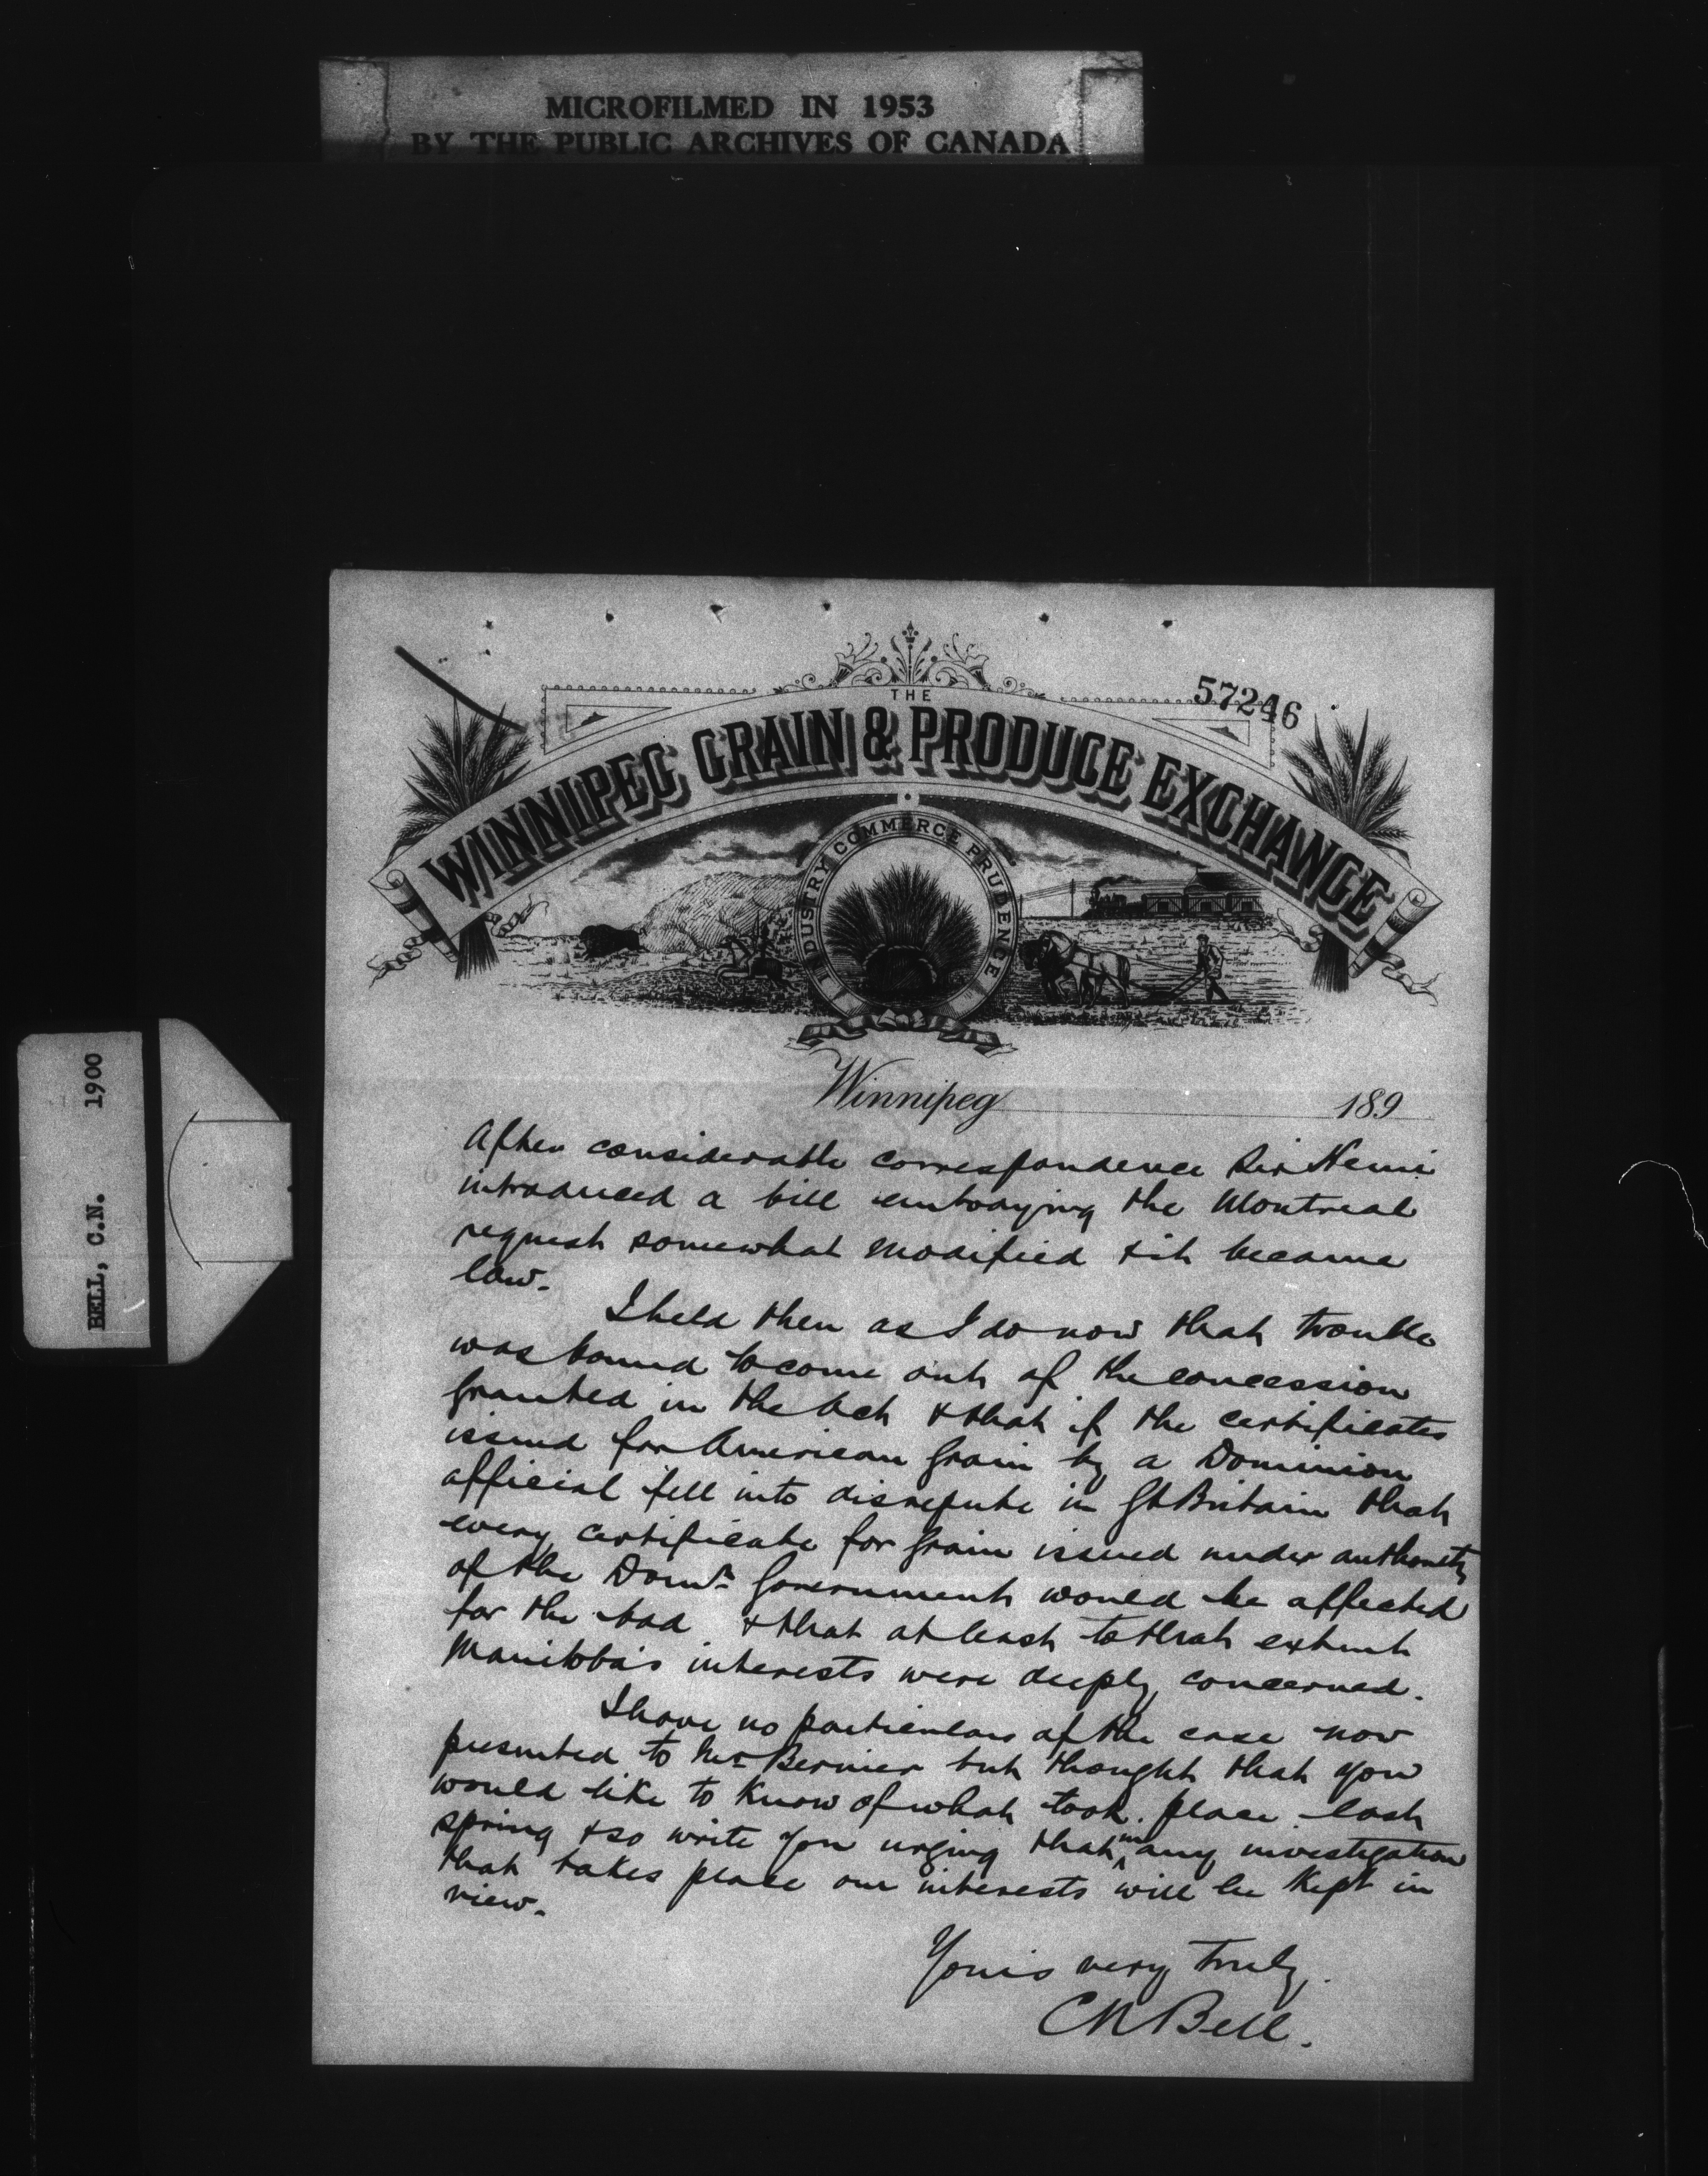 MICROFILMED IN 1953
BY THE PUBLIC ARCHIVES OF CANADA
BELL, C.N. 1900
57246
THE
WINNIPEG GRAIN & PRODUCE EXCHANGE
INDUSTRY COMMERCE PRUDENCE
Winnipeg 189
After considerable correspondence Sir Henri
introduced a bill embodying the Montreal
request somewhat modified & it became
law.
I held then as I do now that trouble
was bound to come out of the concession
granted in the Act & that if the certificates
issued for American grain by a Dominion
official fell into disrepute in Gt Britain that
every certificate for grain issued under authority
of the Domn. Government would be affected
for the bad & that at least to that extent
Manitoba's interests were deeply concerned.
I have no particulars of the case now
presented to Mr Bernier but thought that you
would like to know of what took place last
spring & so write you urging that in any investigation
that takes place our interests will be kept in
view.
Yours very truly
C N Bell.